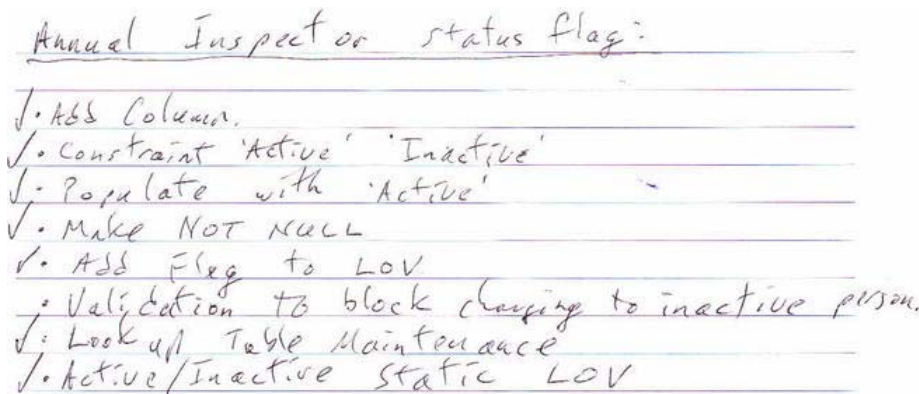 Annual Inspector status flag:
✓. Add Column.
✓. Constraint 'Active' 'Inactive'
✓. Populate with 'Active'
✓. Make NOT NULL
✓. Add Flag to LOV
. Validation to block changing to inactive person.
✓. Look up Table Maintenance
✓. Active/Inactive static LOV